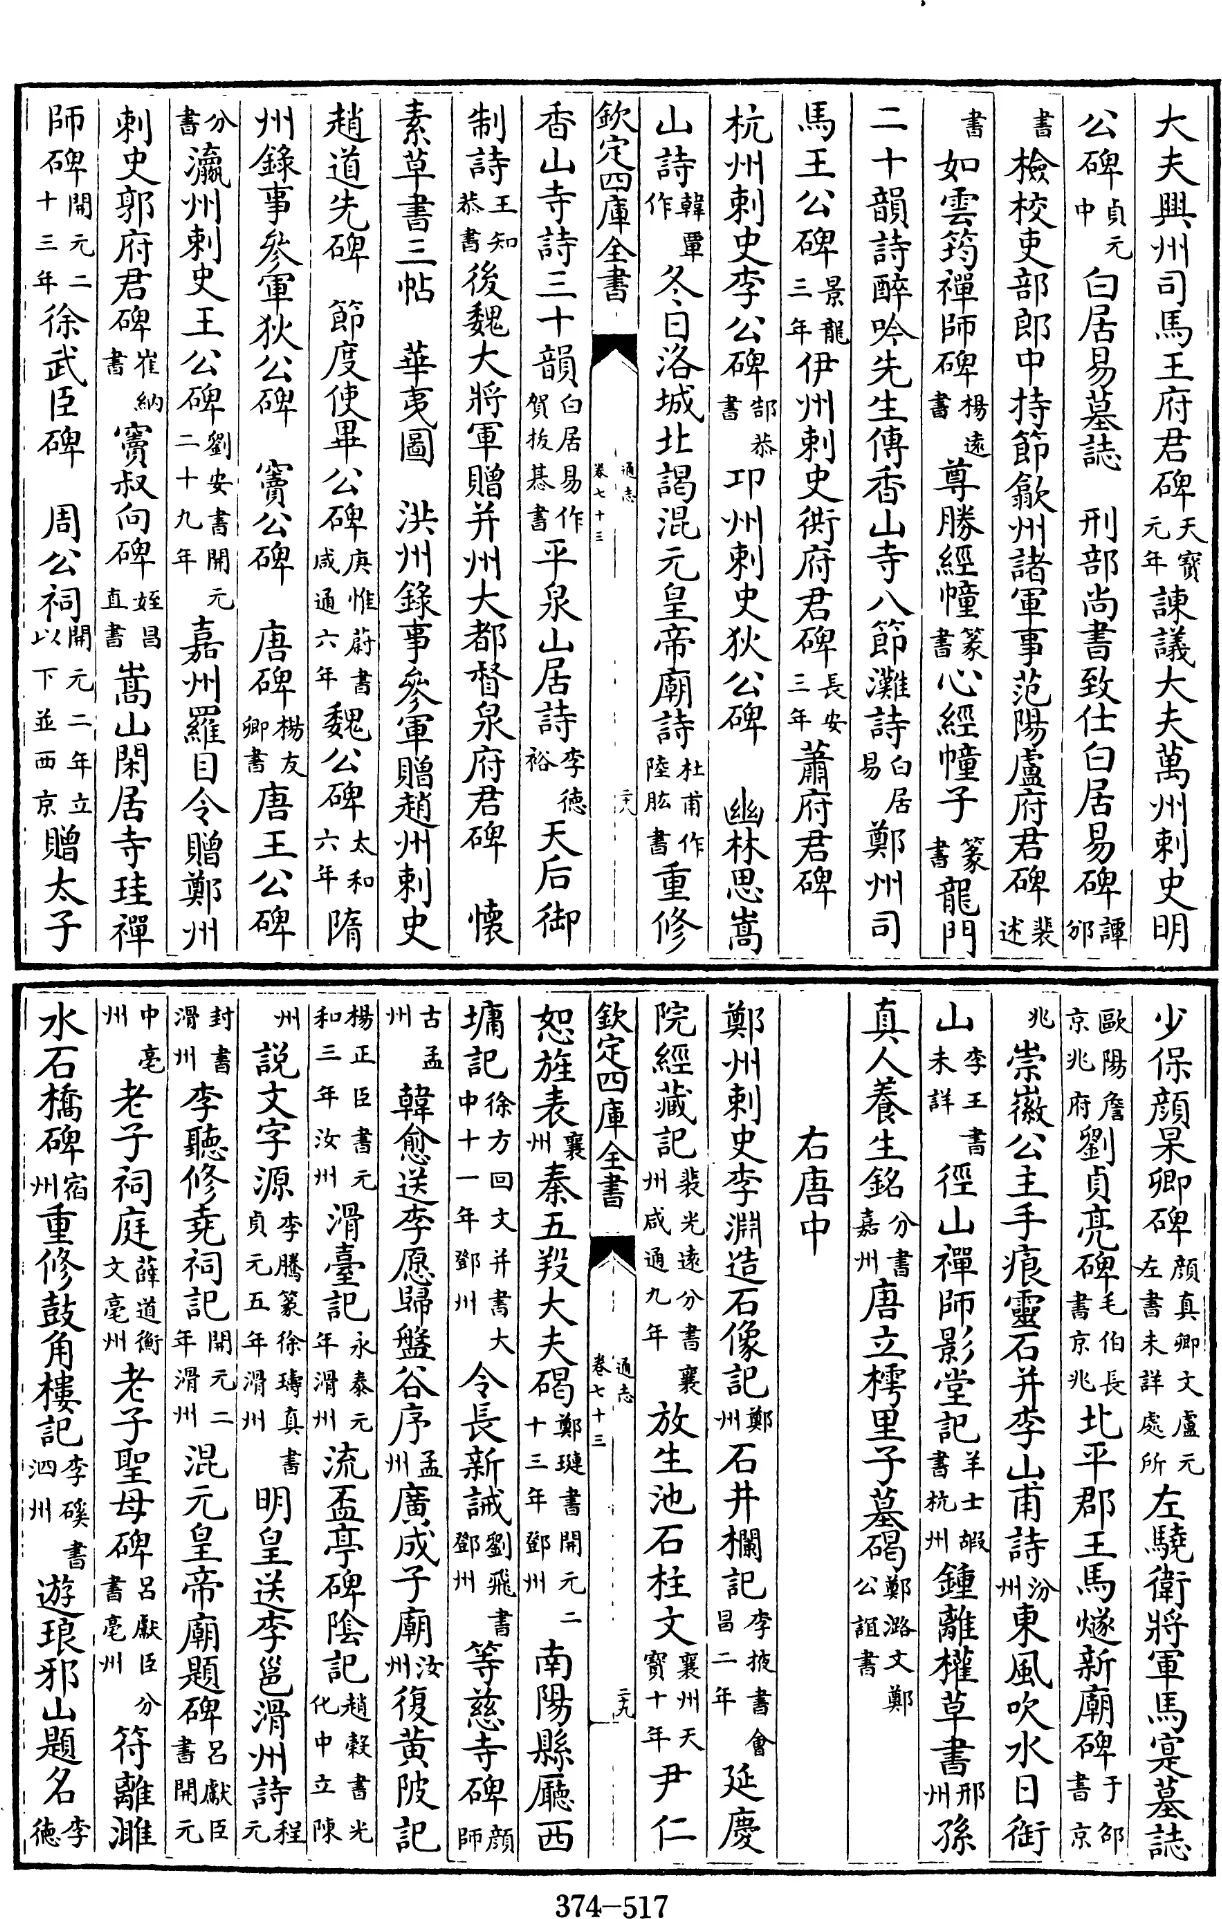 大夫興州司馬王府君碑天寶元年諫議大夫萬州刺史明
公碑貞元中 白居易墓誌 刑部尚書致仕白居易碑譚邠
書 檢校吏部郎中持節歙州諸軍事范陽盧府君碑裴述
書 如雲筠禪師碑楊遠書尊勝經幢篆書心經幢子篆書龍門
二十韻詩醉吟先生傳香山寺八節灘詩白居易鄭州司
馬王公碑景龍三年伊州刺史衙府君碑長安三年蕭府君碑
杭州刺史李公碑郜恭書 卭州刺史狄公碑 幽林思嵩
山詩韓覃作冬日洛城北謁混元皇帝廟詩杜甫作陸肱書重修
欽定四庫全書 通志卷七十三 二十八
香山寺詩三十韻白居易作賀拔惎書平泉山居詩李德裕天后御
制詩王知恭書後魏大將軍贈并州大都督泉府君碑 懷
素草書三帖 華夷圖 洪州錄事參軍贈趙州刺史
趙道先碑 節度使畢公碑庾惟蔚書咸通六年魏公碑太和六年隋
州錄事參軍狄公碑 竇公碑 唐碑楊友卿書唐王公碑
分書瀛州刺史王公碑劉安書開元二十九年嘉州羅目令贈鄭州
刺史郭府君碑崔納書竇叔向碑姪昌直書嵩山閑居寺珪禪
師碑開元二十三年徐武臣碑 周公祠開元二年立以下並西京贈太子
少保顔杲卿碑顔真卿文盧元左書未詳處所左驍衛將軍馬寔墓誌
歐陽詹京兆府劉貞亮碑毛伯長書京兆北平郡王馬燧新廟碑于邵書京
兆 崇徽公主手痕靈石并李山甫詩汾州東風吹水日銜
山李王書未詳徑山禪師影堂記羊士諤書杭州鍾離權草書邢州孫
真人養生銘分書嘉州唐立樗里子墓碣鄭潞文鄭公誼書
右唐中
鄭州刺史李淵造石像記鄭州石井欄記李掖書會昌二年延慶
院經藏記裴光遠分書襄州咸通九年放生池石柱文襄州天寶十年尹仁
欽定四庫全書 通志卷七十三 二十九
恕旌表襄州秦五羖大夫碣鄭璉書開元二十三年鄧州南陽縣廳西
墉記徐方回文并書大中十一年鄧州令長新誡劉飛書鄧州等慈寺碑顔師
古孟州 韓愈送李愿歸盤谷序孟州廣成子廟汝州復黄陂記
楊正臣書元和三年汝州滑臺記永泰元年滑州流盃亭碑陰記趙穀書光化中立陳
州 説文字源李騰篆徐璹真書貞元五年滑州明皇送李邕滑州詩程元
封書滑州李聽修堯祠記開元二年滑州混元皇帝廟題碑呂獻臣書開元
中亳州 老子祠庭薛道衡文亳州老子聖母碑呂獻臣分書亳州符離濉
水石橋碑宿州重修鼓角樓記李磎書泗州遊琅邪山題名李德
374–517